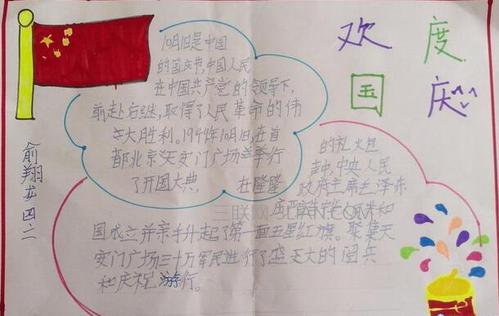 欢 度
国 庆
10月1日是中国
的国庆节,中国人民
在中国共产党的领导下,
前赴后继,取得了人民革命的伟
大胜利。1949年10月1日,在首
都北京天安门广场举行
了开国大典. 在隆隆
的礼炮
声中,中央人民
政府主席毛泽东
和
国成立并亲手升起了第一面五星红旗。聚集天
安门广场三十万军民进行了盛大的阅兵
和庆祝游行。
俞翔 四二
三联网